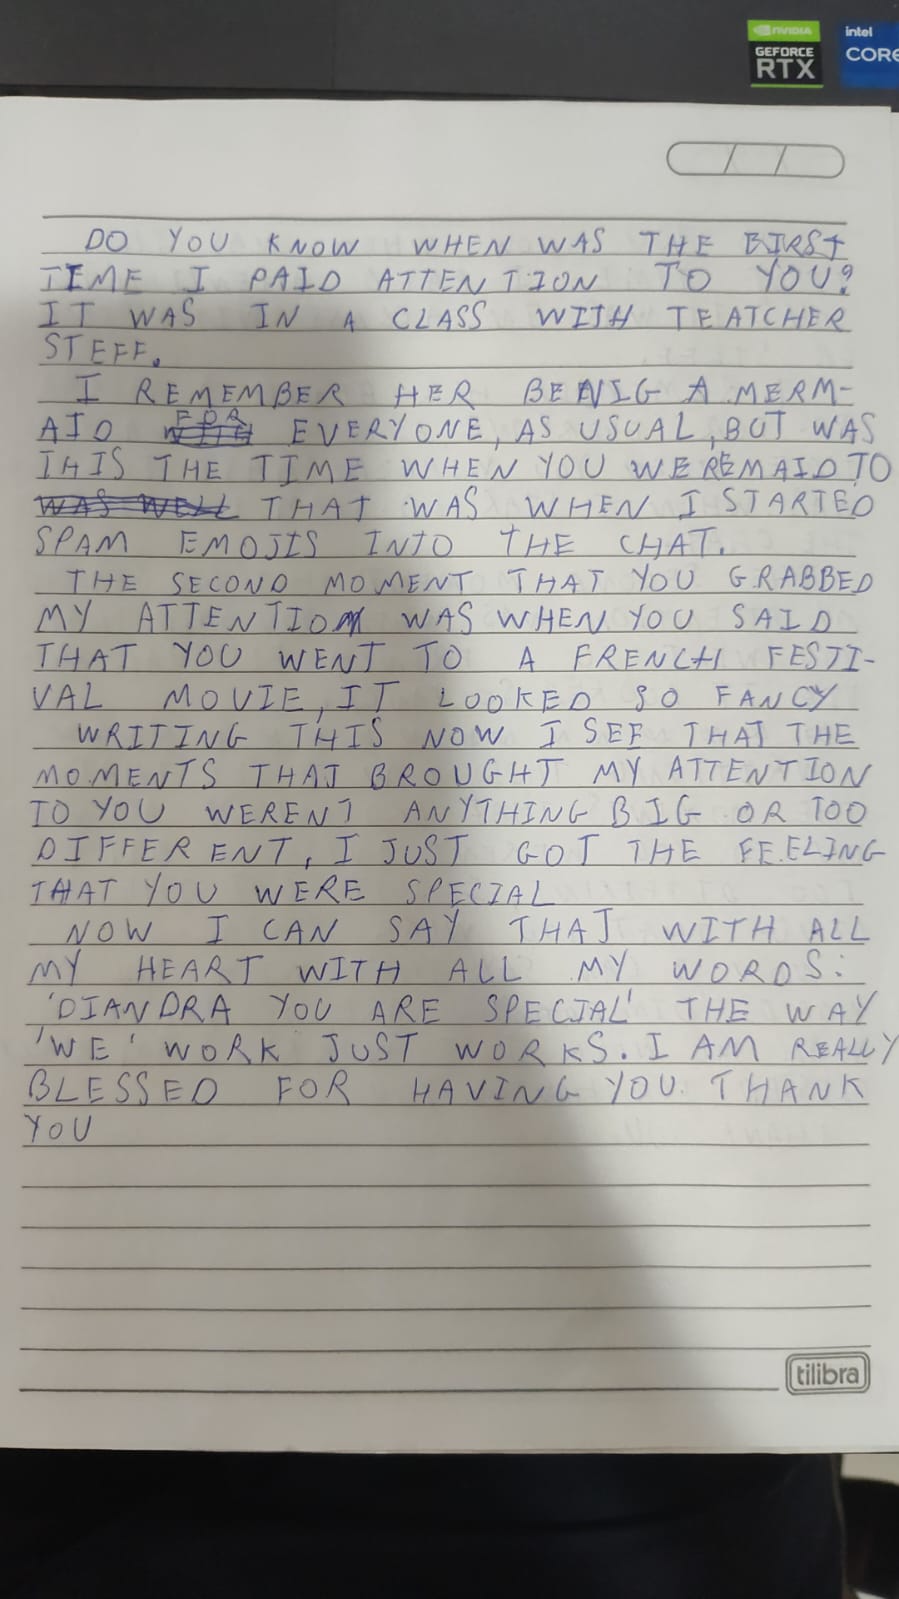 NVIDIA
GEFORCE
RTX
intel
CORE
DO YOU KNOW WHEN WAS THE BIRST
TIME I PAID ATTENTION TO YOU?
IT WAS IN A CLASS WITH TEATCHER
STEFF.
I REMEMBER HER BENIG A MERM-
AID FOR EVERYONE, AS USUAL, BUT WAS
THIS THE TIME WHEN YOU WERE MAID TO
WAS WELL THAT WAS WHEN I STARTED
SPAM EMOJIS INTO THE CHAT.
THE SECOND MOMENT THAT YOU GRABBED
MY ATTENTION WAS WHEN YOU SAID
THAT YOU WENT TO A FRENCH FESTI-
VAL MOVIE, IT LOOKED SO FANCY
WRITING THIS NOW I SEE THAT THE
MOMENTS THAT BROUGHT MY ATTENTION
TO YOU WERENT ANYTHING BIG OR TOO
DIFFERENT, I JUST GOT THE FEELING
THAT YOU WERE SPECIAL
NOW I CAN SAY THAT WITH ALL
MY HEART WITH ALL MY WORDS:
'DIANDRA YOU ARE SPECIAL' THE WAY
'WE' WORK JUST WORKS. I AM REALLY
BLESSED FOR HAVING YOU. THANK
YOU
tilibra